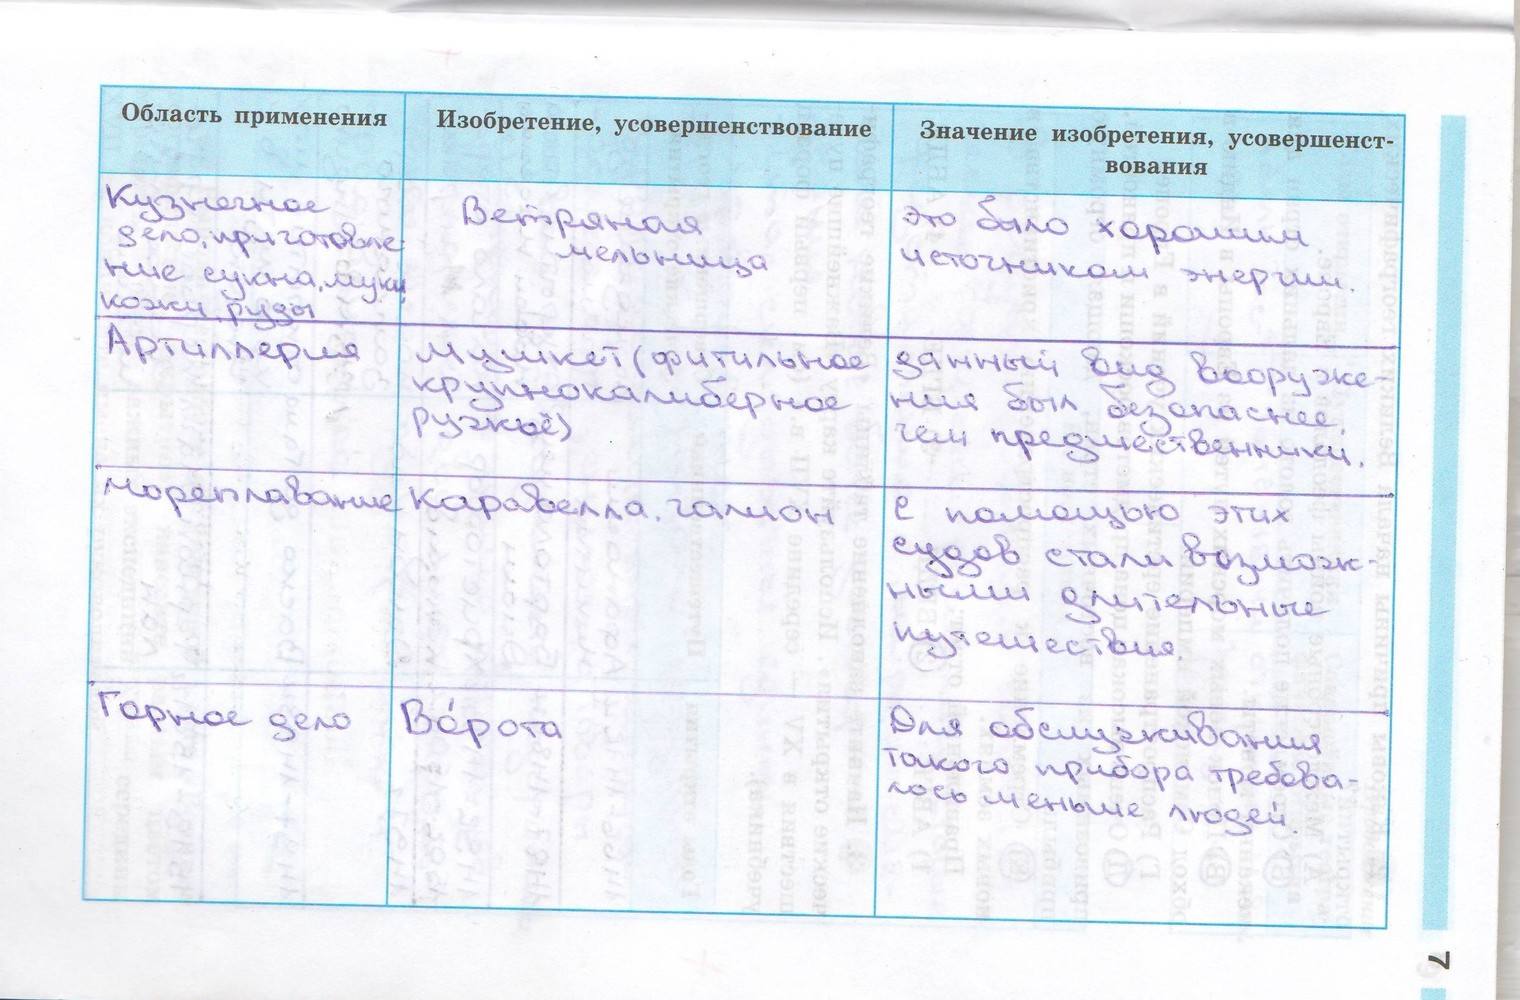 Область применения
Изобретение, усовершенствование
Значение изобретения, усовершенст-
вования
Кузнечное
дело, приготовле-
ние сукна, муки,
кожи, руды
Ветряная
мельница
это было хорошим
источником энергии.
Артиллерия
Мушкет (фитильное
крупнокалиберное
ружьё)
данный вид вооруже-
ния был безопаснее,
чем предшественники.
Мореплавание
Каравелла, галион
С помощью этих
судов стали возмож-
ными длительные
путешествия.
Горное дело
Во́рота
Для обслуживания
такого прибора требова-
лось меньше людей.
7